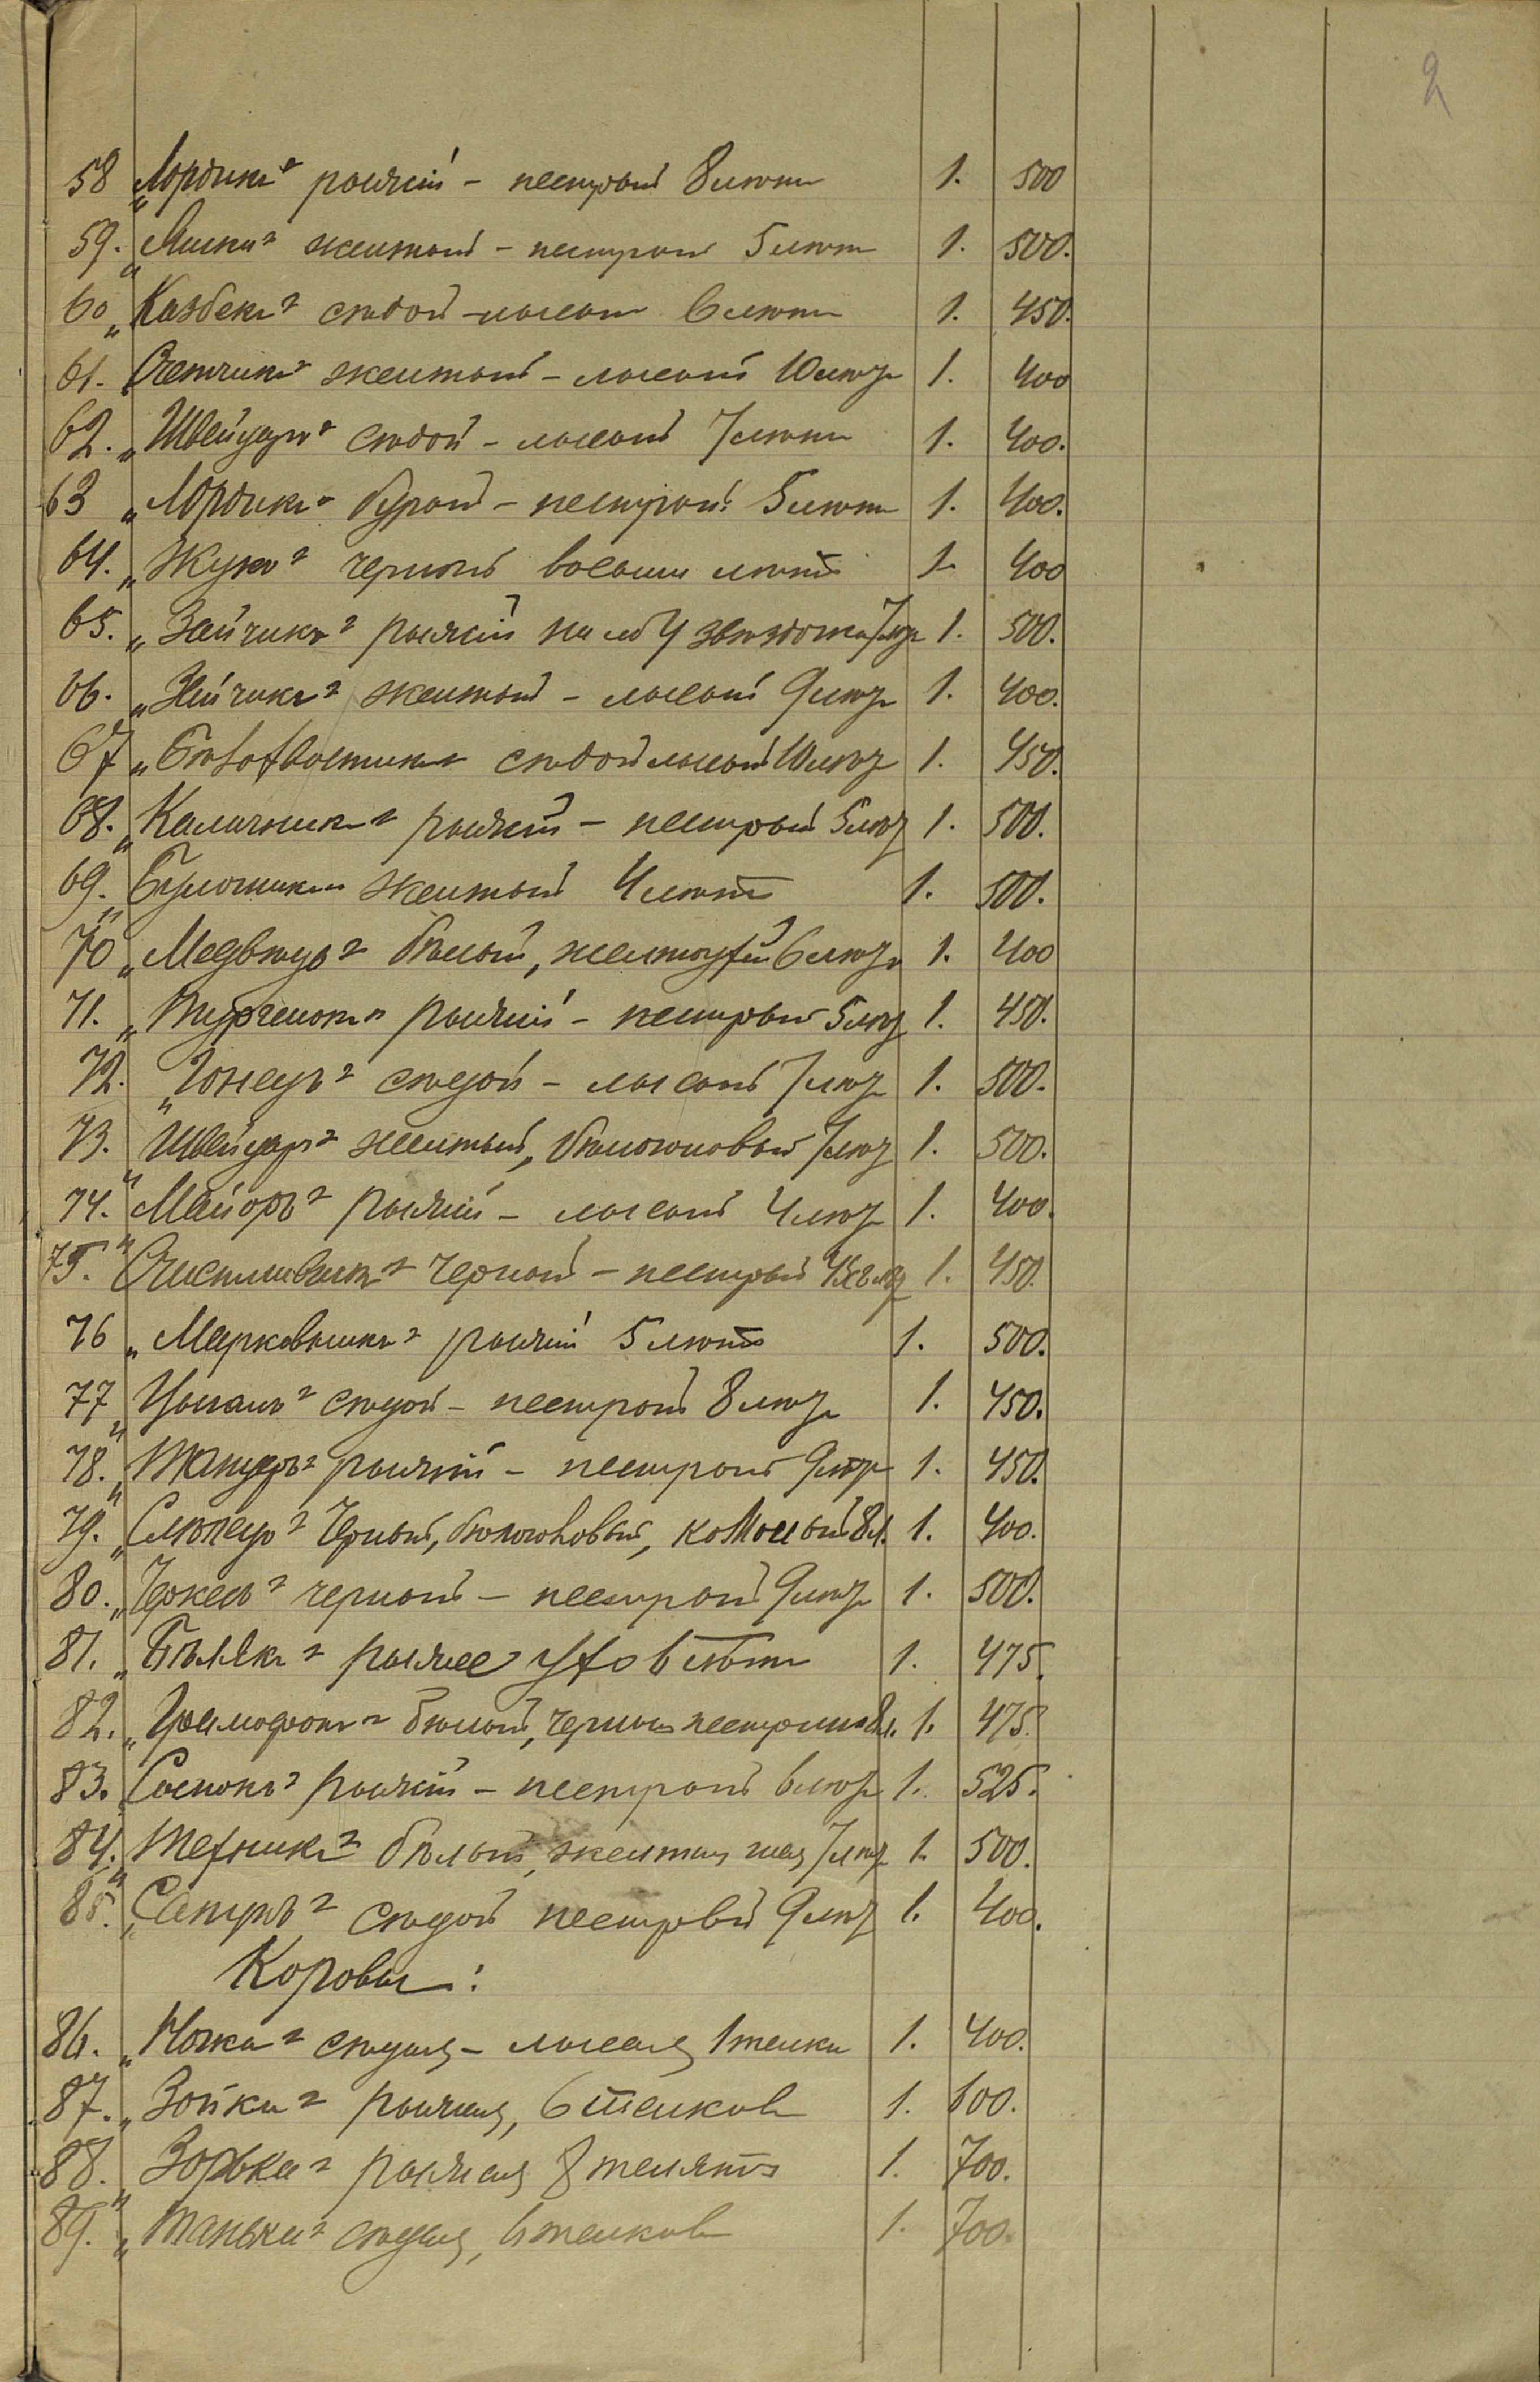 2
58 „Лордикъ“ рыжій – пестрый 8 лѣтъ 1. 500
59. „Мишка“ желтый – пестрый 5 лѣтъ 1. 500.
60 „Казбекъ“ сѣдой – лысый 6 лѣтъ 1. 450.
61. Счетчикъ“ желтый – лысый 10 лѣтъ 1. 400
62. „Швейцаръ“ сѣдой – лысый 7 лѣтъ 1. 400.
63 „Лордикъ“ бурый – пестрый 5 лѣтъ 1. 400.
64. „Жукъ“ черный восьми лѣтъ 1 400
65. „Зайчикъ“ рыжій на лбу звѣздочка 7 лѣтъ 1. 500.
66. „Зайчикъ“ желтый – лысый 9 лѣтъ 1. 400.
67 „Бѣлохвостикъ“ сѣдой лысый 10 лѣтъ 1. 450.
68. „Калачникъ“ рыжій – пестрый 5 лѣтъ 1. 500.
69. „Булочникъ“ желтый 4 лѣтъ 1. 500.
70 „Медвѣдь“ бѣлый, желтоухій 6 лѣтъ 1. 400
71. „ рыжій – пестрый 5 лѣтъ 1. 450.
72. „Гонецъ“ сѣдой – лысый 7 лѣтъ 1. 500.
73. „Швейцаръ“ желтый, бѣлоголовый 7 лѣтъ 1. 500.
74. „Майоръ“ рыжій – лысый 4 лѣтъ 1. 400.
75. „Счастливчикъ“ черный – пестрый 4 1. 450.
76 „Марковникъ“ рыжій 5 лѣтъ 1. 500.
77 „Цыганъ“ сѣдой – пестрый 8 лѣтъ 1. 450.
78. „Танцеръ“ рыжій – пестрый 9 лѣтъ 1. 450.
79. „Слѣпецъ“ Черный, бѣлоголовый, комолый 8 л. 1. 400.
80. „Черкесъ“ черный – пестрый 9 лѣтъ 1. 500.
81. „Бѣлякъ“ рыжее ухо 6 лѣтъ 1. 475.
82. „Граммофонъ“ бѣлый, 8 л. 1. 475.
83. „ рыжій – пестрый 6 лѣтъ 1. 525.
84. „Техникъ“ бѣлый, желтая шея 7 лѣтъ 1. 500.
85. „Сатуръ“ сѣдой пестрый 9 лѣтъ 1. 400.
Коровы:
86. „Ночка“ сѣдая – лысая, 1 телка 1. 400.
87. „Зойка“ рыжая, 6 телковъ 1. 600.
88. „Зорька“ рыжая 8 телятъ 1. 700.
89. „Танька“ сѣдая, 6 телковъ 1. 700.